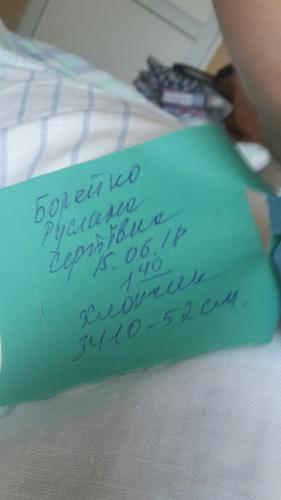 Борейко
Руслана
Сергіївна
15.06.18
1 40
Хлопчик
3410-52см.